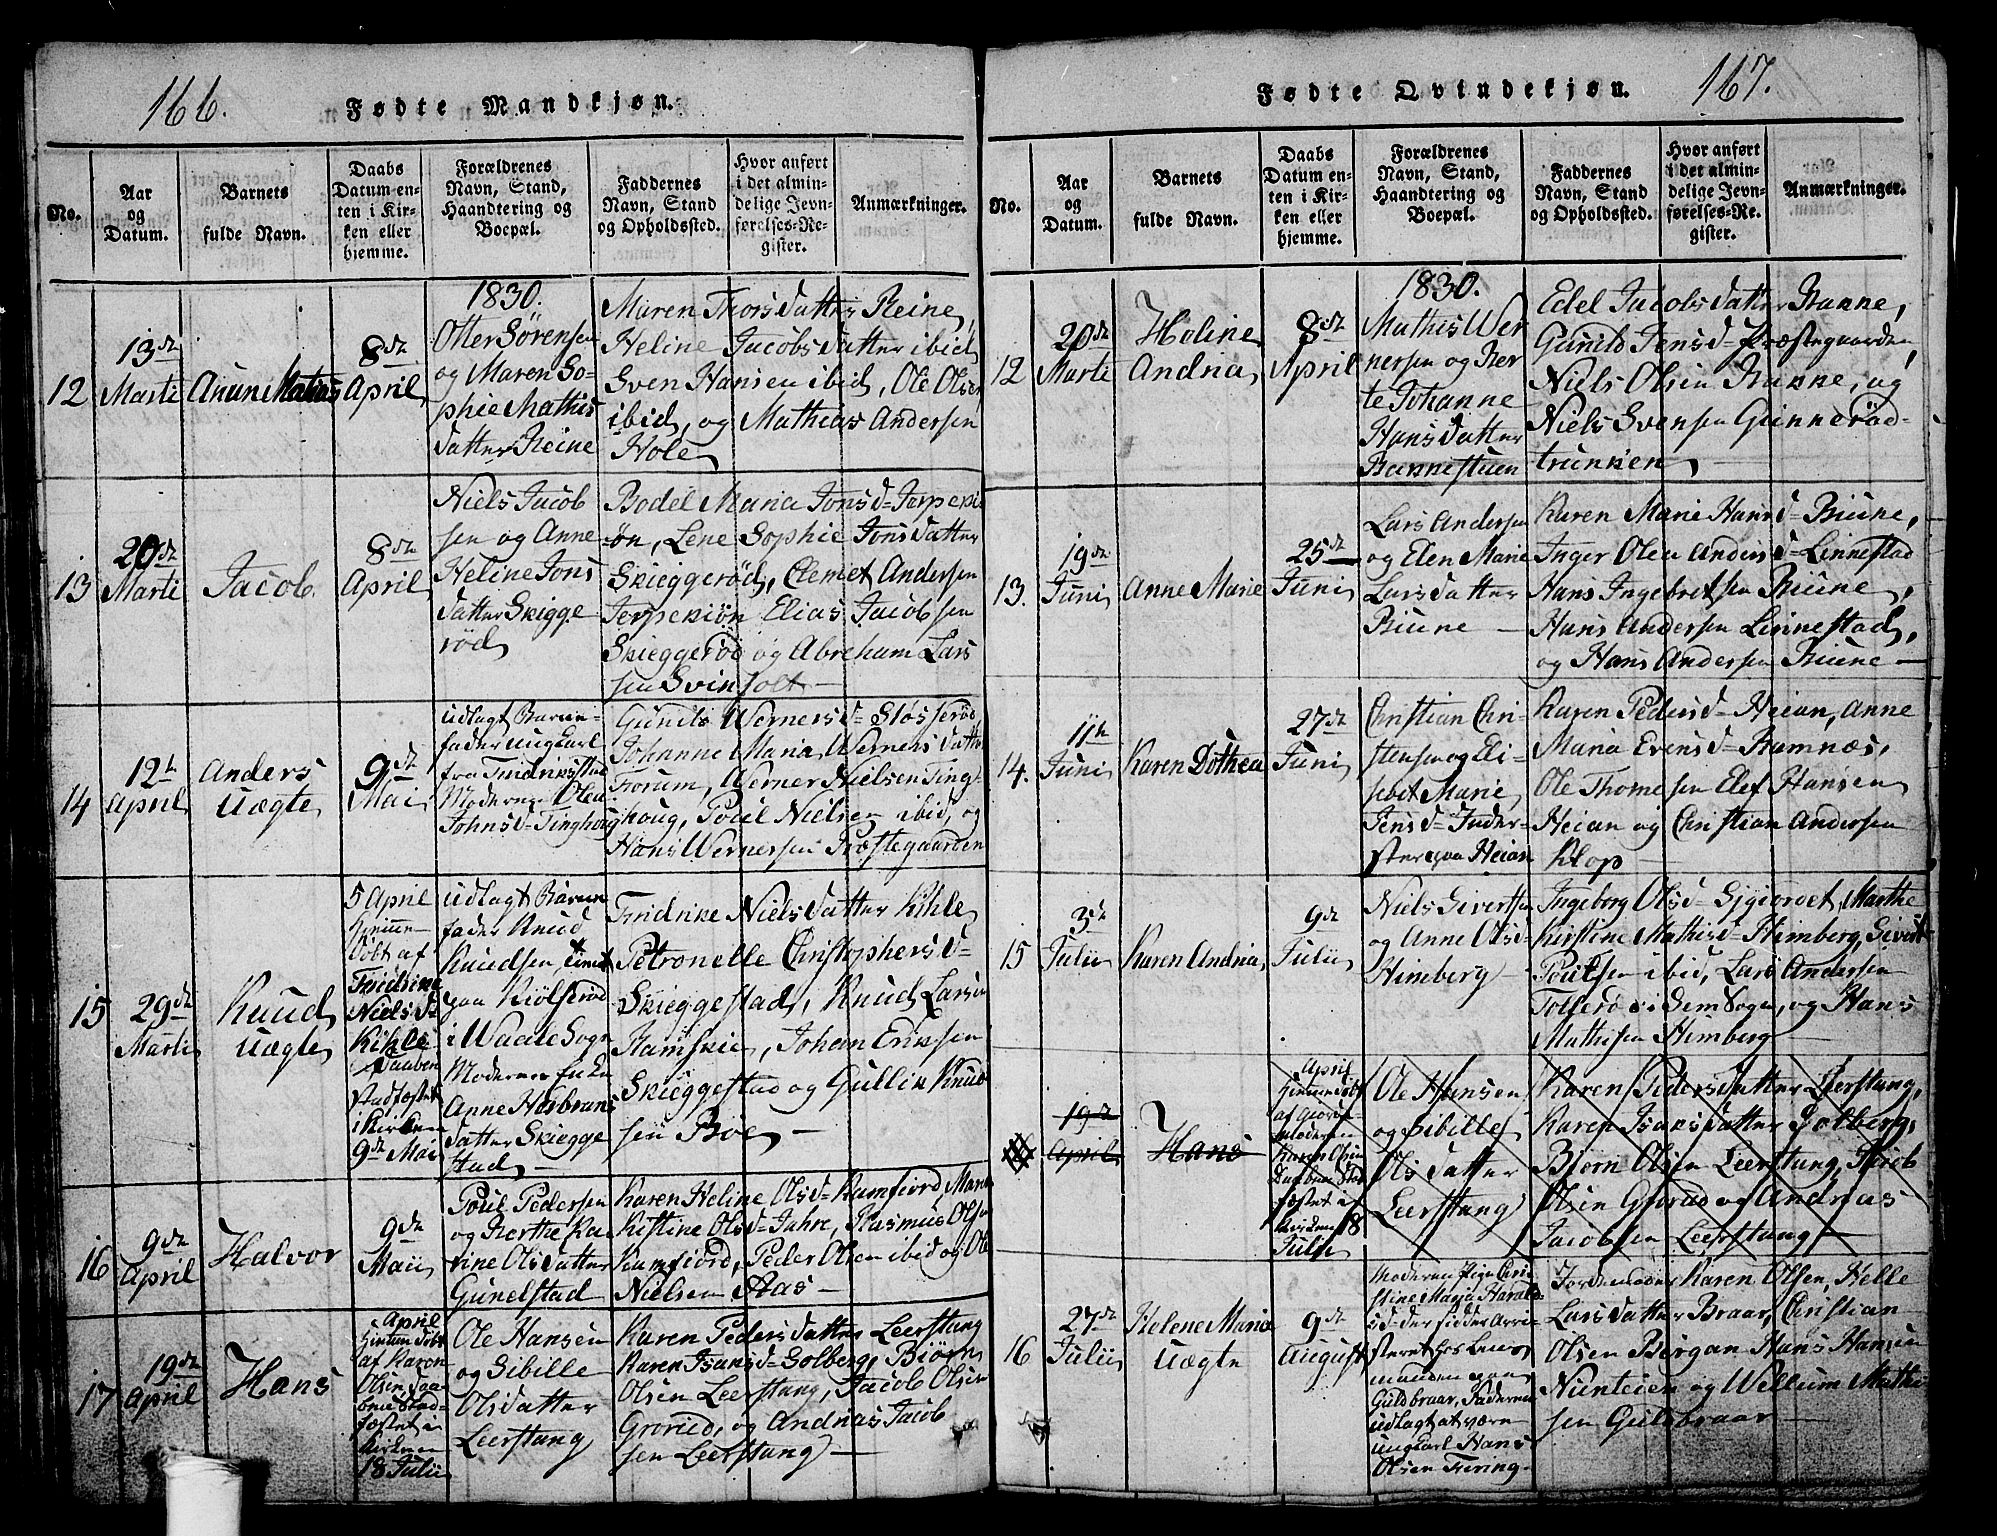 166.
Fødte Mandkjøn.
No.
Aar
og
Datum.
Barnets
fulde Navn.
Daabs
Datum en-
ten i Kir-
ken eller
hjemme.
Forældrenes
Navn, Stand,
Haandtering og
Boepæl.
Faddernes
Navn, Stand
og Opholdssted.
Hvor anført
i det almin-
delige Jevn-
førelses-Re-
gister.
Anmærkninger.
12
13de
Marti
Anun Matias
8de
April
1830.
Otter Sørensen
og Maren So-
phie Mathis
datter Reine
Maren Thorsdatter Reine,
Heline Jacobsdatter ibid,
Sven Hansen ibid, Ole Olsen
ibid, og Mathias Andersen
Hole
13
20de
Marti
Jacob.
8de
April
Niels Jacob
sen og Anne
Heline Jons
datter Skigge
rød
Bodel Maria Jonsd=
øn, Lene Sophie Jonsdatter
Skieggerød, Clemet Andersen
Jerpekiøn Elias Jacobsen
Skieggerød og Abreham Lars
sen Svinholt
14
12te
April
Anders
Uægte
9de
Mai
udlagt Barne-
fader ungkarl
fra
Moderen Olea
Johnsd= Tinghoug
Gunild Wernersd=
Johanne Maria Wernersdatter
Forum, Werner Nielsen Ting-
houg, Poul Nielsen ibid, og
Hans Wernersen Præstegaarden
15
29de
Marti
Knud
Uægte
5 April
hiemme-
døbt af
Nielsd=
Kihle
Daaben
stadfæstet
i Kirken
9de Mai
udlagt Barne
fader Knud
Knudsen,
paa Kiølserød
i Waale Sogn
Moderen
Anne Halvrans
datter Skiegge
stad
Fridrike Nielsdatter Kihle
Petronelle Christophersd=
Skieggestad, Knud Larsen
Ramskie, Johan Eriksen
Skieggestad og Gullik Knud
sen Boe
16
9de
April
Halvor
9de
Maii
Poul Pedersen
og Berthe Ka
rine Olsdatter
Gunelstad
Karen Heline Olsd= Kamfiord, Maria
Kistine Olsd= Jahre, Rasmus Olsen
Kamfiord, Peder Olsen ibid og Ole
Nielsen Aas
17
19de
April
Hans
April
hiemmedøbt
af Karen
Olsen, Daa-
ben Stad-
fæstet i
Kirken
18 Julii
Ole Hansen
og Sibille
Olsdatter
Leerstang
Karen Pedersdatter Leerstang
Karen Isaksd= Solberg, Biørn
Olsen Leerstang, Jacob Olsen
Grorud, og Andreas Jacob
sen Leerstang
167.
Fødte Qvindekjøn.
No.
Aar
og
Datum.
Barnets
fulde Navn.
Daabs
Datum en-
ten i Kir-
ken eller
hjemme.
Forældrenes
Navn, Stand,
Haandtering og
Boepæl.
Faddernes
Navn, Stand
og Opholdssted.
Hvor anført
i det almin-
delige Jevn-
førelses-Re-
gister.
Anmærkninger.
12
20de
Marti
Holine
Andria
8de
April
1830.
Mathis Wer
nersen og Ber
te Johanne
Hansdatter
Bakkestuen
Edel Jacobsdatter Bakke,
Gunild Jensd= Præstegaarden,
Niels Olsen Bakke, og
Niels Svensen Gunnerød-
trunken
13.
19de
Juni
Anne Marie
25de
Juni
Lars Andersen
og Elen Marie
Larsdatter
Biune
Karen Marie Hansd= Biune,
Inger Olea Andersd= Linnestad
Hans Ingebretsen Biune,
Hans Andersen Linnestad,
og Hans Andersen Biune
14.
11te
Juni
Karen Dothea
27de
Juni
Christian Chri-
stensen og Eli-
sbet Marie
Jensd= Inder-
ster paa Heian
Karen Pedersd= Heian, Anne
Maria Evensd= Ramnæs,
Ole Thomesen Elef Hansen
Heian og Christian Andersen
Klop
15
3de
Julii
Karen Andria
9de
Julii
Niels Sivertsen
og Anne Olsd=
Himberg
Ingeborg Olsd= Sjgiordet, Marthe
Kirstine Mathisd= Himberg, Sivert
Poulsen ibid, Lars Andersen
Tollerød i Sem Sogn, og Hans
Mathisen Himberg
19de
April
Hans
April
hiemmedøbt
af Giorde-
moderen
Karen Olsen
Daaben Stad
fæstet i
Kirken 18
Julii
Ole Hansen
og Sibille
Olsdatter
Leerstang
Karen Pedersdatter Leerstang,
Karen Isaksdatter Solberg,
Biørn Olsen Leerstang, Jacob
Olsen Grorud og Andreas
Jacobsen Leerstang
16
27de
Julii
Helene Maria
Uægte
9de
August
Moderen Pige Chri-
stine Maria Harald-
sd= der sidder Arre-
steret hos Lens-
manden paa
Guldbraar, Faderen
udlagt at være
ungkarl Hans
Olsen Firing
Jordemoder Karen Olsen, Helle
Larsdatter Braar, Christian
Olsen Bergan Hans Hansen
Nunteien og Wellum Mathi
sen Guldbraar